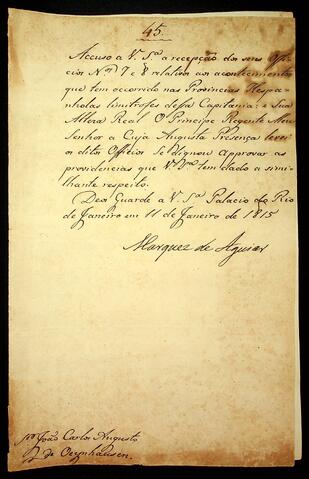 45.
Accuso a V. Sª a recepção dos seus Offi-
cios Nos 7 e 8 relativos aos acontecimentos
que tem occorrido nas Provincias Hespa-
nholas limitrofes dessa Capitania: e Sua
Alteza Real O Principe Regente Meu
Senhor a Cuja Augusta Presença levei
os ditos Officios Se dignou approvar as
providencias que V. Sª tem dado a simi-
lhante respeito.
Deos Guarde a V. Sª Palacio do Rio
de Janeiro em 11 de Janeiro de 1815
Marquez de Aguiar
Sr João Carlos Augusto
de Oeynhausen.